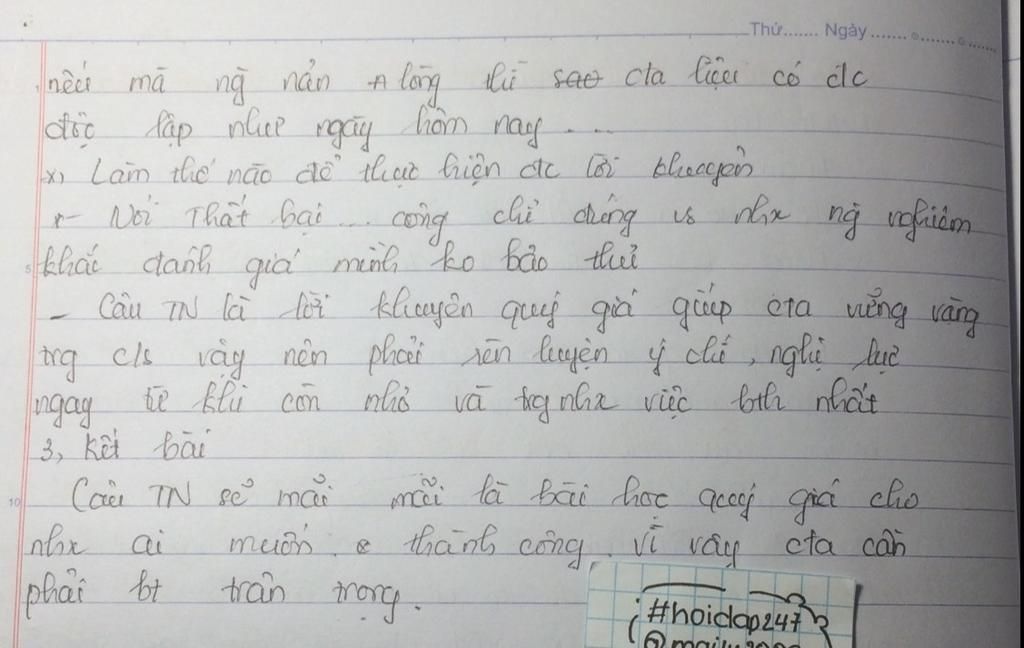 Thứ....... Ngày.......
nếu mà ng nản lòng thì sao cta liệu có đc
độc lập như ngày hôm nay ...
x, Làm thế nào để thực hiện đc lời khuyên
- Nói Thất bại ... công chỉ đúng vs nhx ng nghiêm
5
khắc đánh giá mình ko bảo thủ
- Câu TN là lời khuyên quý giá giúp cta vững vàng
trg c/s vậy nên phải rèn luyện ý chí, nghị lực
ngay từ khi còn nhỏ và trg nhx việc bth nhất
3, Kết bài
10
Câu TN sẽ mãi mãi là bài học quý giá cho
nhx ai muốn thành công. Vì vậy cta cần
phải bt trân trọng.
#hoidap247